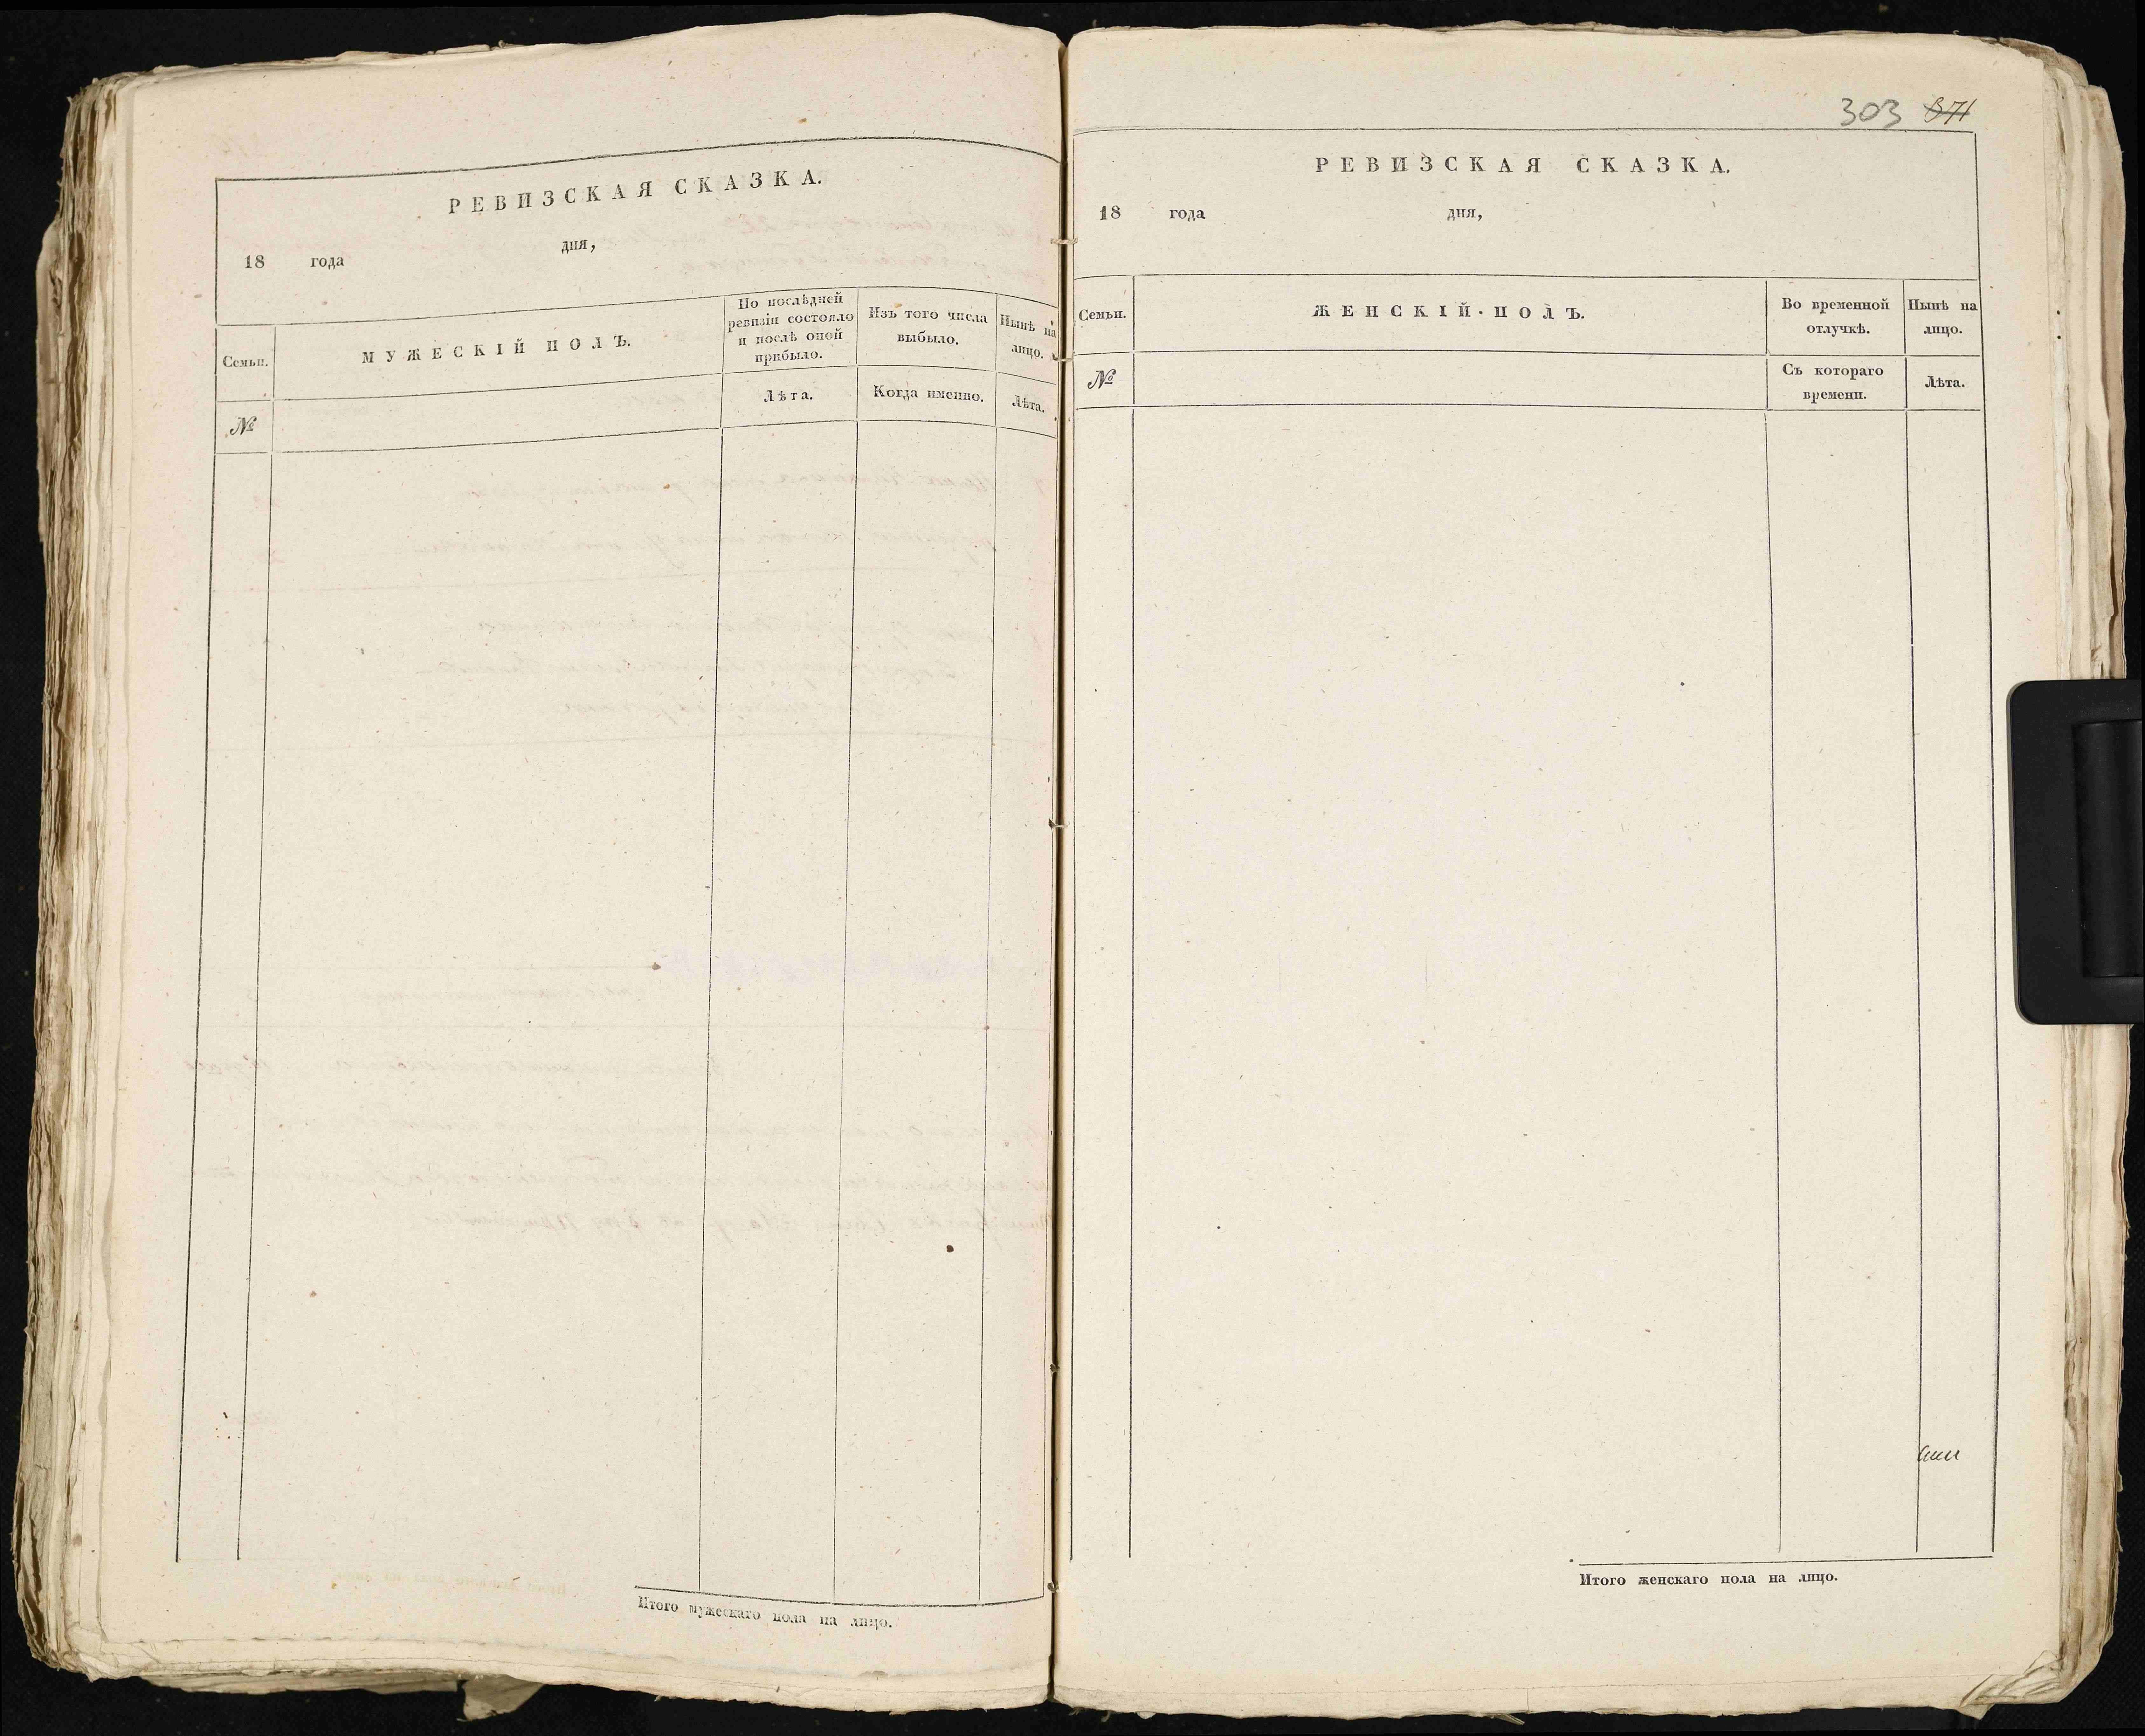 РЕВИЗСКАЯ СКАЗКА.
18 года дня,
Семьи.
МУЖЕСКІЙ ПОЛЪ.
По послѣдней
ревизіи состояло
и послѣ оной
прибыло.
Изъ того числа
выбыло.
Нынѣ на
лицо.
№
Лѣта.
Когда именно.
Лѣта.
Итого мужескаго пола на лицо.
303 371
РЕВИЗСКАЯ СКАЗКА.
18 года дня,
Семьи.
ЖЕНСКІЙ ПОЛЪ.
Во временной
отлучкѣ.
Нынѣ на
лицо.
№
Съ котораго
времени.
Лѣта.
Итого женскаго пола на лицо.